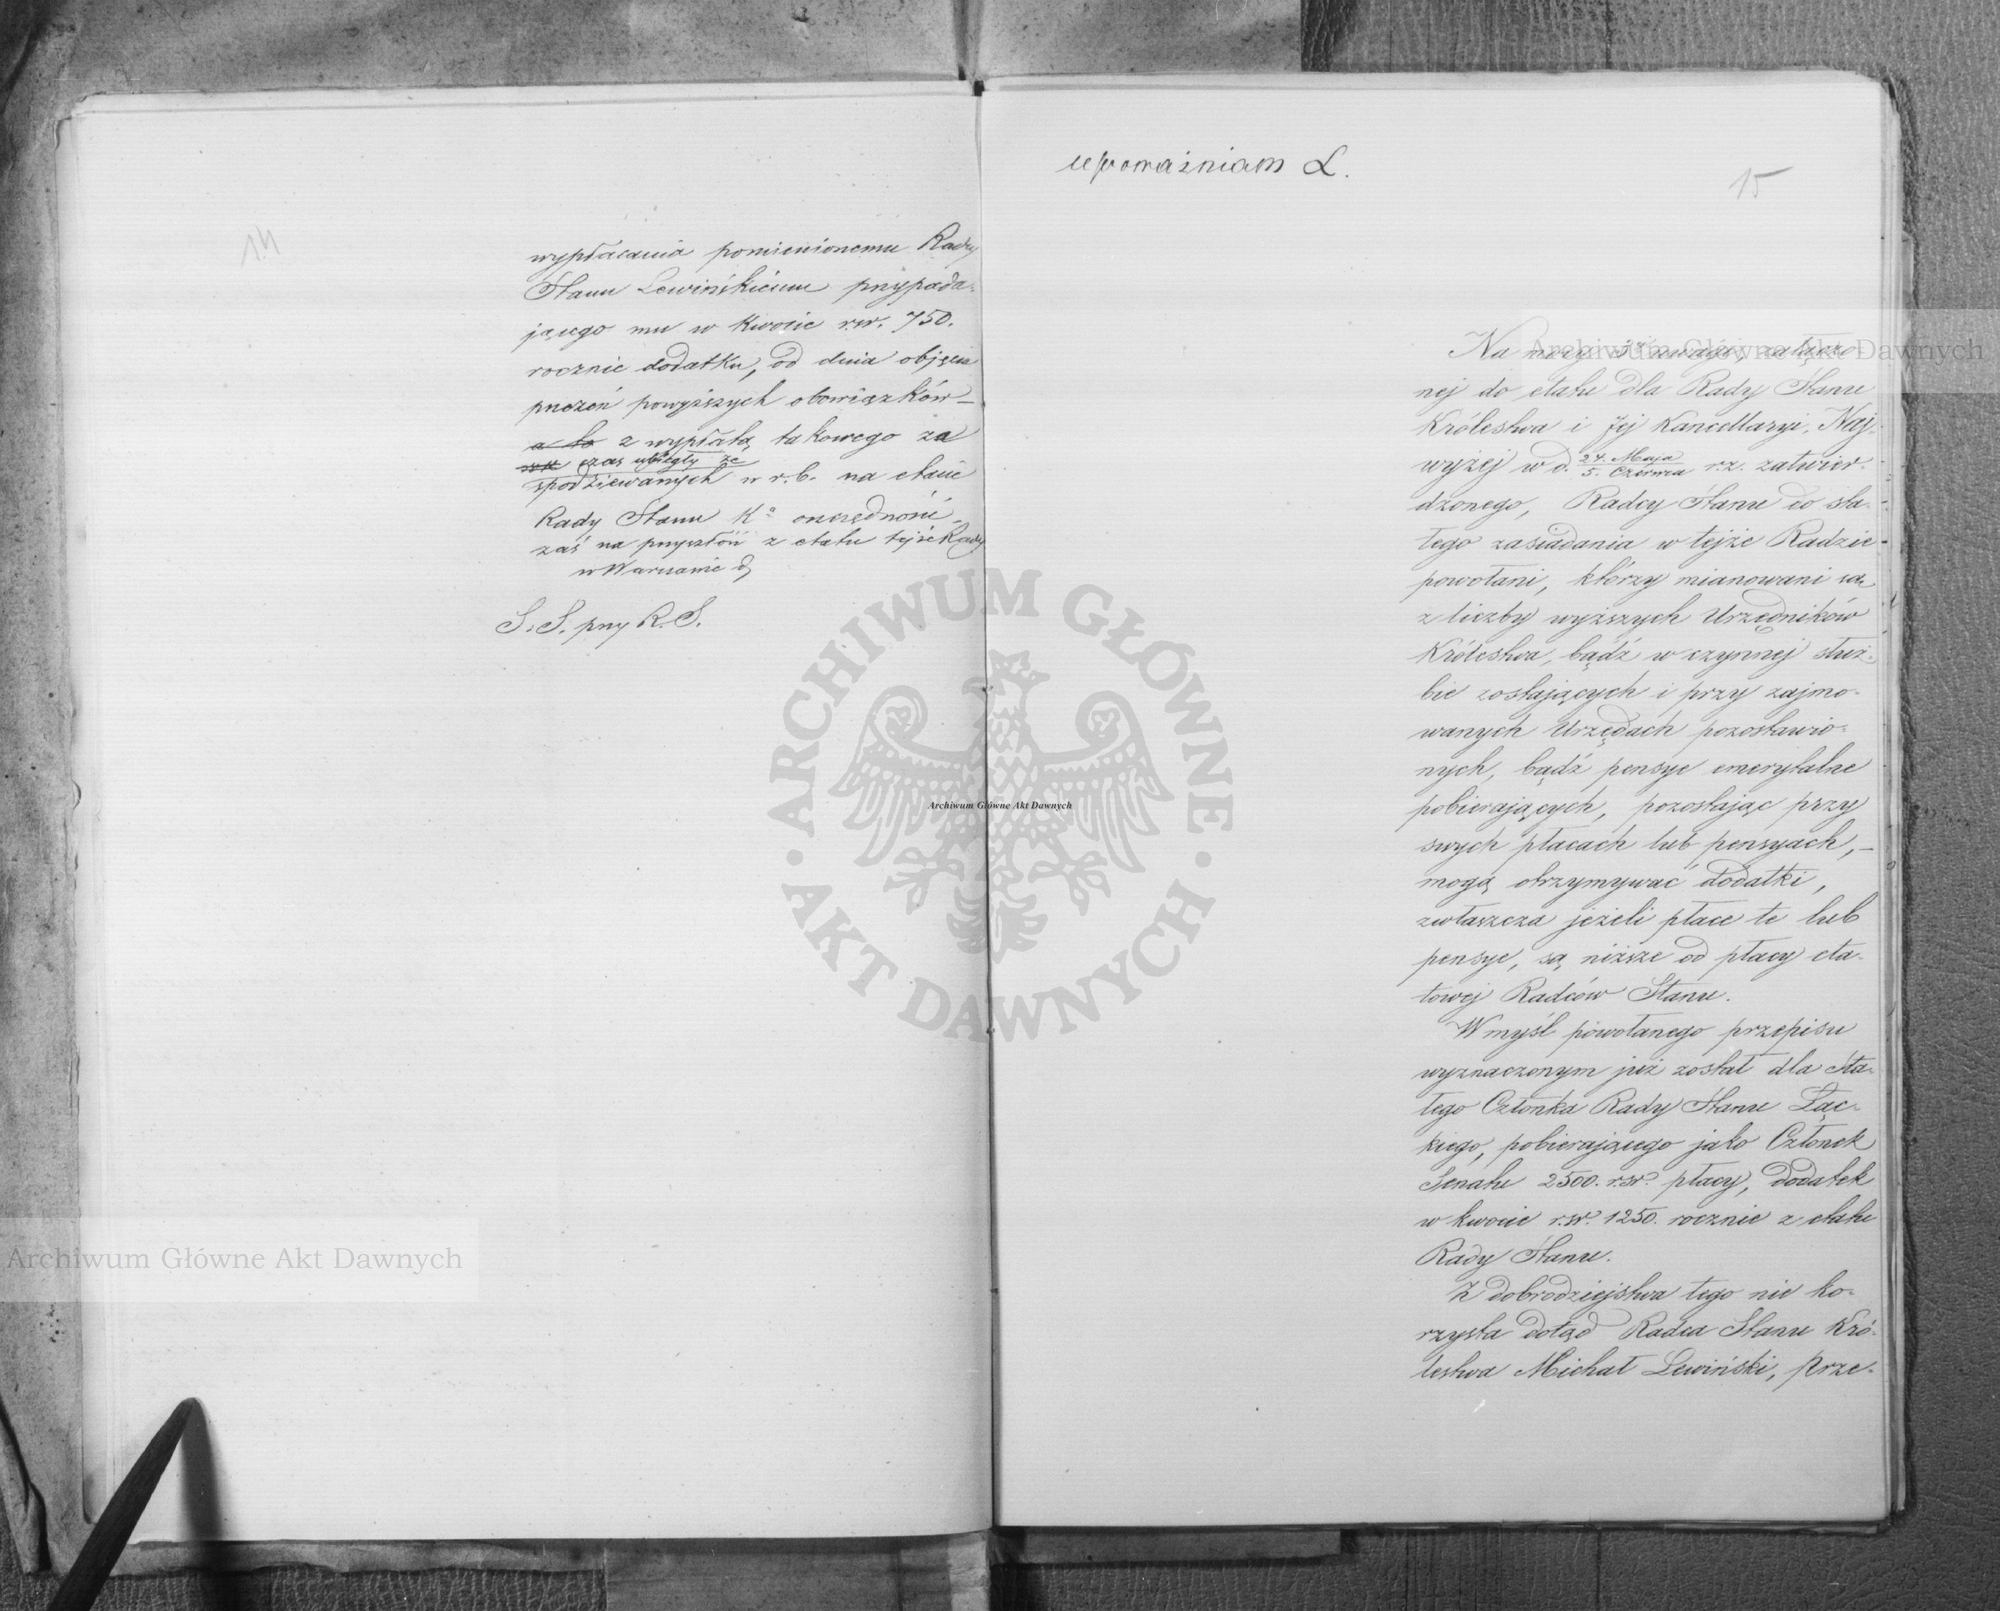 14
wypłacania pomienionemu Radcy
Stanu Lewińskiemu przypada-
jącego mu w kwocie rsr. 750.
rocznie dodatku, od dnia objęcia
przezeń powyższych obowiązków –
a to z wypłatą takowego za
czas ubiegły ze
spodziewanych w r. b. na etacie
Rady Stanu Ka oszczędności,
zaś na przyszłość z etatu tejże Rady
w Warszawie d
S. S. przy R. S.
upoważniam L.
15
Na mocy 5ej uwagi, załączo-
nej do etatu dla Rady Stanu
Królestwa i Jej Kancellaryi, Naj-
wyżej w d. 24. Maja / 5. Czerwca r.z. zatwier-
dzonego, Radcy Stanu do sta-
łego zasiadania w tejże Radzie
powołani, którzy mianowani są
z liczby wyższych Urzędników
Królestwa, bądź w czynnej służ-
bie zostających i przy zajmo-
wanych Urzędach pozostawio-
nych, bądź pensye emerytalne
pobierających, pozostając przy
swych płacach lub pensyach, –
mogą otrzymywać dodatki,
zwłaszcza jeżeli płace te lub
pensye, są niższe od płacy eta-
towej Radców Stanu.
W myśl powołanego przepisu
wyznaczonym już został dla Sta-
łego Członka Rady Stanu Łąc-
kiego, pobierającego jako Członek
Senatu 2500. rsr. płacy, dodatek
w kwocie rsr. 1250. rocznie z etatu
Rady Stanu.
Z dobrodziejstwa tego nie ko-
rzysta dotąd Radca Stanu Kró-
lestwa Michał Lewiński, Prze-
Archiwum Główne Akt Dawnych
ARCHIWUM GŁÓWNE
AKT DAWNYCH
Archiwum Główne Akt Dawnych
Archiwum Główne Akt Dawnych